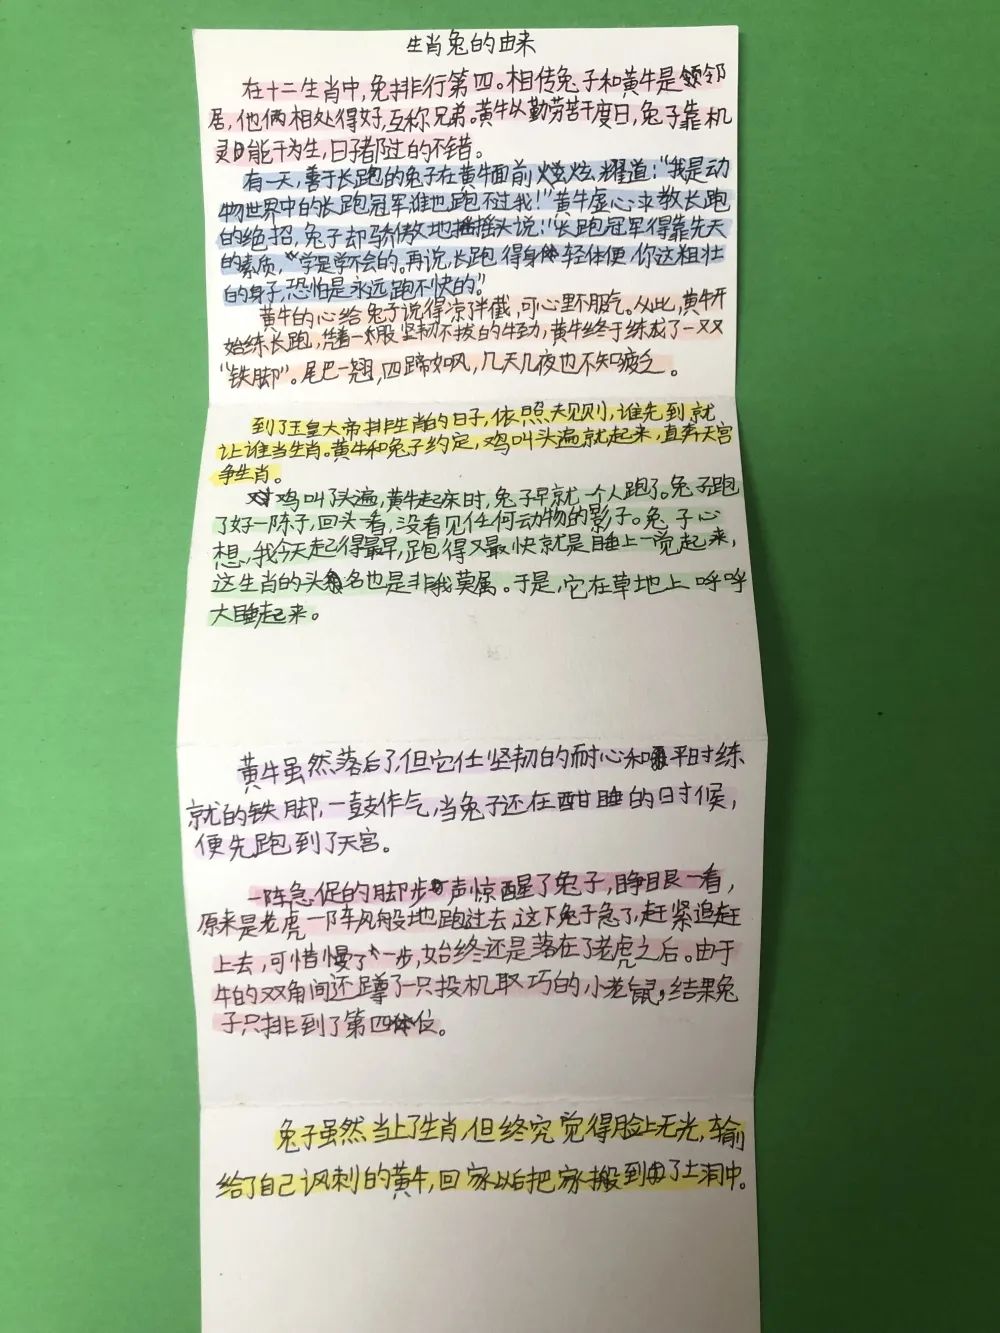 生肖兔的由来
在十二生肖中,兔排行第四。相传兔子和黄牛是邻
居,他俩相处得好,互称兄弟。黄牛以勤劳苦干度日,兔子靠机
灵能干为生,日子都过的不错。
有一天,善于长跑的兔子在黄牛面前炫耀道:“我是动
物世界中的长跑冠军谁也跑不过我!”黄牛虚心求教长跑
的绝招,兔子却骄傲地摇摇头说:“长跑冠军得靠先天
的素质,学是学不会的。再说,长跑得身轻体便,你这粗壮
的身子,恐怕是永远跑不快的。”
黄牛的心给兔子说得凉了半截,可心里不服气。从此,黄牛开
始练长跑,凭着一股坚韧不拔的牛劲,黄牛终于练成了一双
“铁脚”。尾巴一翘,四蹄如风,几天几夜也不知疲乏。
到了王皇大帝排生肖的日子,依照规则,谁先到就
让谁当生肖。黄牛和兔子约定,鸡叫头遍就起来,直奔天宫
争生肖。
鸡叫了头遍,黄牛起床时,兔子早就一个人跑了。兔子跑
了好一阵子,回头一看,没看见任何动物的影子。兔子心
想,我今天起得最早,跑得又最快就是睡上一觉起来,
这生肖的头名也是非我莫属。于是,它在草地上呼呼
大睡起来。
黄牛虽然落后了,但它仗坚韧的耐心和平时练
就的铁脚,一鼓作气,当兔子还在酣睡的时候,
便先跑到了天宫。
一阵急促的脚步声惊醒了兔子,睁眼一看,
原来是老虎一阵风般地跑过去,这下兔子急了,赶紧追赶
上去,可惜慢了一步,始终还是落在了老虎之后。由于
牛的双角间还蹲了一只投机取巧的小老鼠,结果兔
子只排到了第四位。
兔子虽然当上了生肖,但终究觉得脸上无光,输
给了自己讽刺的黄牛,回家以后把家搬到了土洞中。